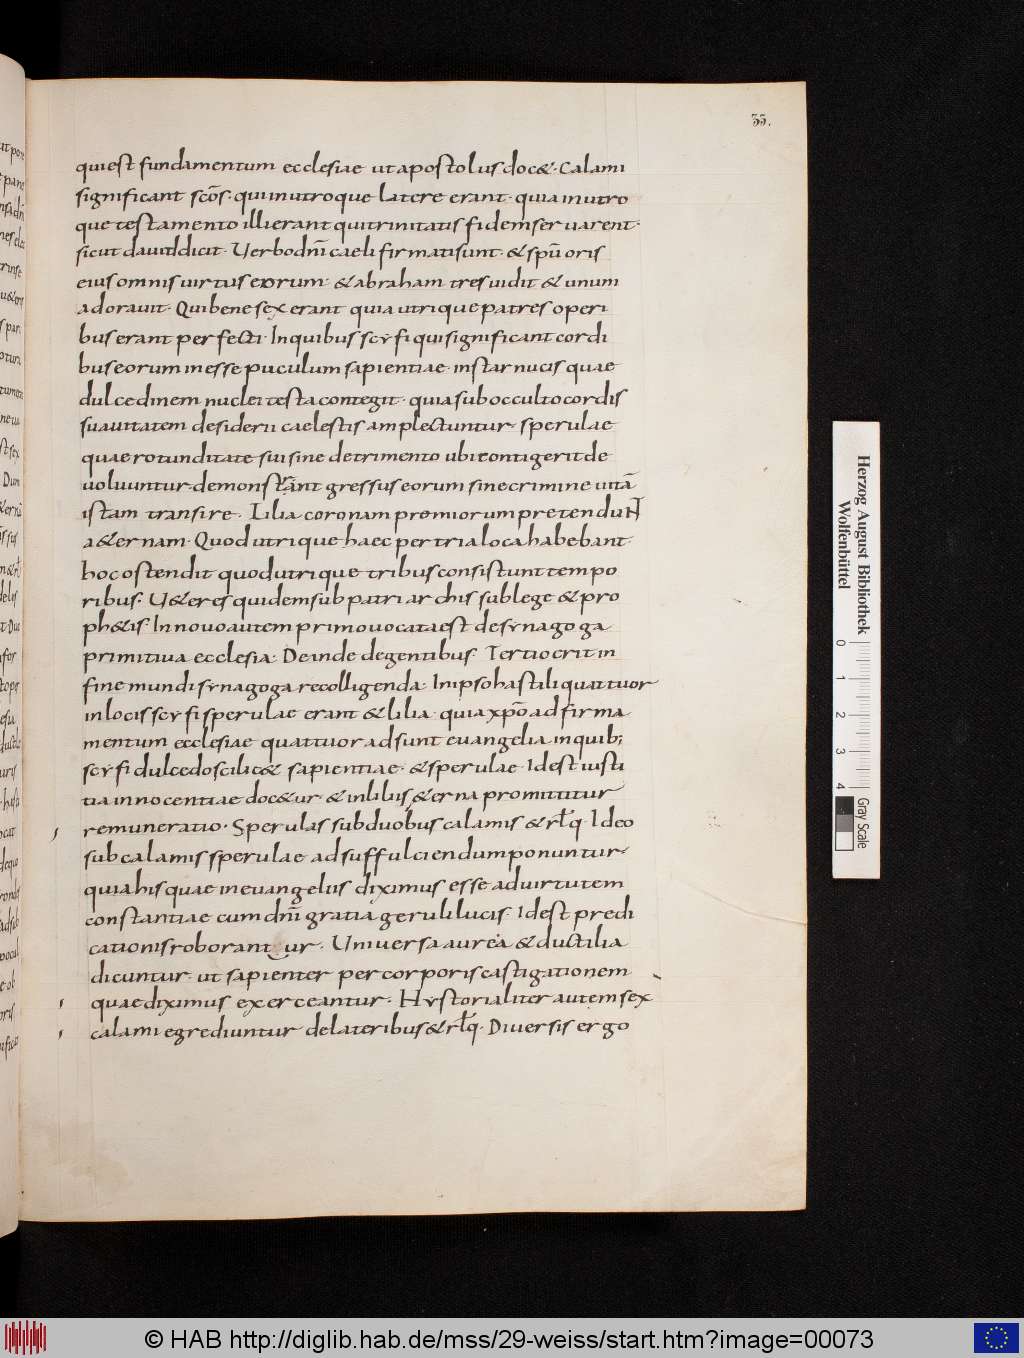 33.
qui est fundamentum ecclesiae ut apostolus doc&. Calami
significant scōs. qui in utroque latere erant. quia in utro
que testamento illi erant qui trinitatis fidem seruarent.
sicut dauid dicit. Uerbo dnī caeli firmati sunt. & spū oris
eius omnis uirtus eorum. & abraham tres uidit & unum
adorauit. Qui bene sex erant quia utrique patres operi
bus erant perfecti. In quibus scyfi qui significant cordi
bus eorum inesse puculum sapientiae. instar nucis quae
dulcedinem nuclei testa contegit. quia sub occulto cordis
suauitatem desiderii caelestis amplectuntur. sperulae
quae rotunditate sui sine detrimento ubi contigerit de
uoluuntur. demonstrant gressus eorum sine crimine uitā
istam transire. Lilia coronam premiorum pretendunt
a&ernam. Quod utrique haec per tria loca habebant.
hoc ostendit quod utrique tribus consistunt tempo
ribus. U&eres quidem sub patriarchis sub lege & pro
ph&is. In nouo autem primo uocata est de synagoga
primitiua ecclesia. Deinde de gentibus. Tertio erit in
fine mundi synagoga recolligenda. In ipso hastili quattuor
in locis scyfi sperulae erant & lilia. quia xpō ad firma
mentum ecclesiae quattuor adsunt euangelia in quib;
scyfi dulcedo scilic& sapientiae. & sperulae. Id est iusti
tia innocentiae doc&ur. & in liliis &erna promittitur
remuneratio. Sperulas sub duobus calamis & rłq. Ideo
sub calamis sperulae ad suffulciendum ponuntur.
quia his quae in euangeliis diximus esse ad uirtutem
constantiae cum dnī gratia geruli lucis. Id est predi
cationis roborantur. Uniuersa aurea & ductilia
dicuntur. ut sapienter per corporis castigationem
quae diximus exerceantur. Hystorialiter autem sex
calami egrediuntur de lateribus & rłq. Diuersis ergo
Herzog August Bibliothek
Wolfenbüttel
0 1 2 3 4
Gray Scale
© HAB http://diglib.hab.de/mss/29-weiss/start.htm?image=00073